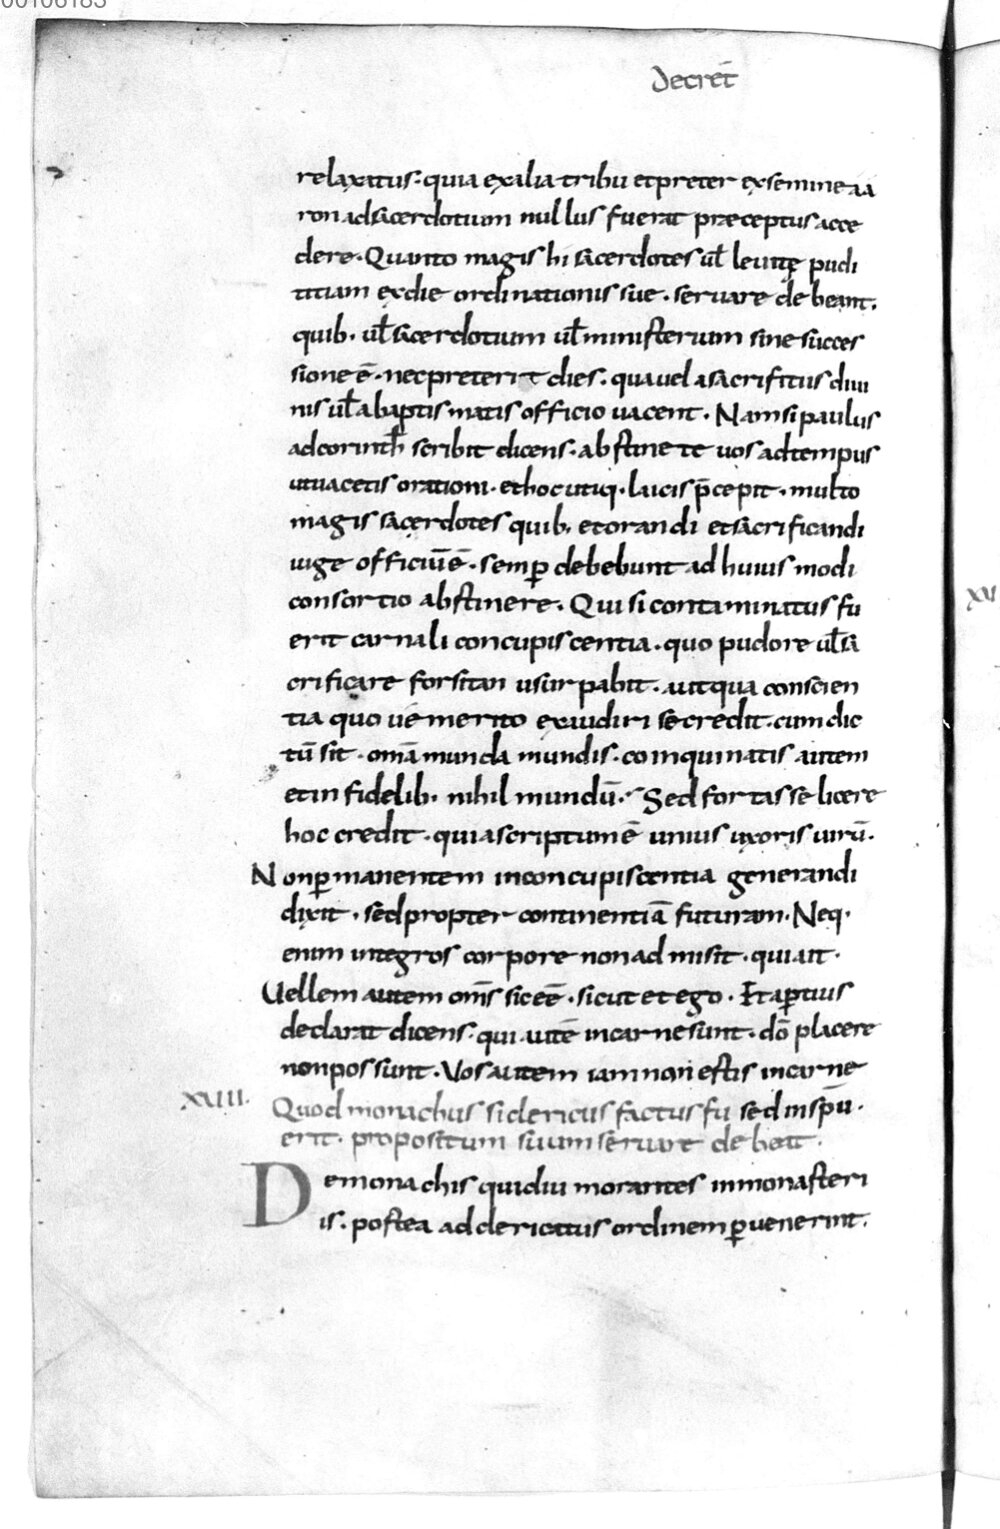 00106183
Decret̄
relaxatus· quia exalia tribu et preter ex semine aa
ron ad sacerdotium nullus fuerat præceptus acce
dere· Quanto magis hi sacerdotes ul̄ leuitę pudi
titiam ex die ordinationis sue· seruare debeant,
quib· ul̄ sacerdotium ul̄ ministerium sine succes
sione ē· nec preterit dies· qua uel a sacrifitiis diui
nis ul̄ a baptismatis officio uacent· Nam si paulus
ad corinth̄ scribit dicens· abstinete uos ad tempus
ut uacetis orationi· et hoc utiq· laicis p̄cepit· multo
magis sacerdotes quib, et orandi et sacrificandi
iuge officiū ē· semꝑ debebunt ad huius modi
consortio abstinere· Qui si contaminatus fu
erit carnali concupiscentia· quo pudore ul̄ sa
crificare forsitan usurpabit· aut qua conscien
tia quo ue merito exaudiri se credit· cum dic
tū sit· om̄a munda mundis· coinquinatis autem
et infidelib· nihil mundū· Sed fortasse licere
hoc credit· quia scriptum ē unius uxoris uirū·
Non ꝑmanentem in concupiscentia generandi
dixit· sed propter continentiā futuram· Neq·
enim integros corpore non admisit· qui ait·
Uellem autem om̄s sic eē· sicut et ego· Et aꝑtius
declarat dicens· qui autē in carne sunt· dō placere
non possunt· Vos autem iam non estis in carne
XVIII· Quod monachus si clericus factus fu sed in sp̄u·
erit· propositum suum seruare debeat·
De monachis qui diu morantes in monasteri
is· postea ad clericatus ordinem ꝑuenerint·